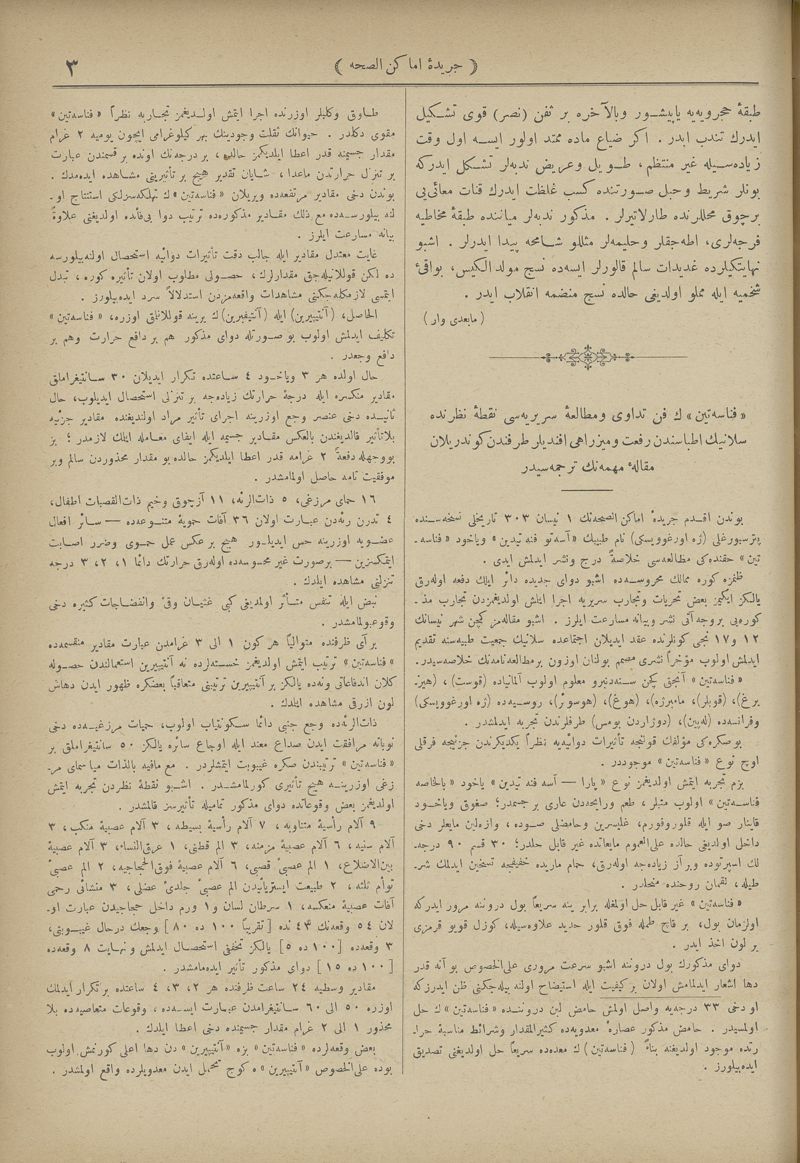 ﴿ جريدۀ اماكن الصحه ﴾
٣
طبقۀ حجرویه‌یه یاپیشور وبالآخره بر ثفن (نصر) قوی تشكیل
ایدرك تندب ایدر . اكر ضیاع ماده ممتد اولور ایسه اول وقت
زیاده‌سیله غیر منتظم ، طویل وعریض ندبه‌لر تشكل ایدركه
بونلر شریط وحبل صورتنده كسب غلظت ایدرك قنات معائی‌یی
برچوق محللرنده طارلاتیرلر . مذكور ندبه‌لر میاننده طبقۀ مخاطیه
فرجه‌لری، اطه‌جقلر وحلیمه‌لر مثللو شامخه پیدا ایدرلر . اشبو
نهایتكیلرده غدیدات سالم قالورلر ایسه‌ده نسج مولد الكیس، بواقئ
شحمیه ایله مملو اولدیغی حالده نسج منضمه انقلاب ایدر .
( مابعدی وار )
« فناسه‌تین » ك فن تداوی ومطالعۀ سریریه‌سی نقطۀ نظرنده
سلانیك اطباسندن رفعت ومیزراهی افندیلر طرفندن كوندریلان
مقالۀ مهمه‌نك ترجمه‌سیدر
بوندن اقدم جریدۀ اماكن الصحه‌نك ١ نیسان ٣٠٣ تاریخلی نسخه‌سنده
پترسبورغلی (زه اورغویسكی) نام طبیبك «آسه‌تو فنه تیدین» ویاخود «فناسه-
تین» حقنده‌كی مطالعه‌سی خلاصةً درج ونشر ایدلمش ایدی .
ظنمزه كوره ممالك محروسه‌ده اشبو دوای جدیده دائر ایلك دفعه اوله‌رق
یالكز ایكیمز بعض تحریات وتجارب سریریه اجرا ایلمش اولدیغمزدن تجارب مذ-
كوره‌یی بروجه آتی نشر وبیانه مسارعت ایلرز . اشبو مقاله‌مز كچن شهر نیسانك
١٢ و١٧ نجی كونلرنده عقد ایدیلان اجتماعده سلانیك جمعیت طبیه‌سنه تقدیم
ایدلمش اولوب مؤخراً نشری مصمم بولنان اوزون بر مطالعه‌نامه‌نك خلاصه‌سیدر.
«فناسه‌تین» آنجق كچن سنه‌دنبرو معلوم اولوب آلمانیاده (قوست)، (هینز-
برغ)، (قوبلر)، مامبرزه)، (هوغ)، (هوسوز)، روسیه‌ده (زه اورغوویسكی)
وفرانسه‌ده (له‌پین)، (دوژاردن بومس) طرفلرندن تجربه ایدلمشدر .
بوصكره‌كی مؤلفك قولنجه تأثیرات دوائیه‌یه نظراً یكدیكرندن جزئیجه فرقلی
اوچ نوع «فناسه‌تین» موجوددر .
بزم تجربه ایتمش اولدیغمز نوع «پارا — آسه فنه تیدین» یاخود «بالخاصه
فناسه‌تین» اولوب متبلر، طعم ورایحه‌دن عاری بر جسمدر؛ صغوق ویاخود
قاینار صو ایله قلوروفورم، غلیسرین وحامضلی صوده، وازه‌لین مایعلر دخی
داخل اولدیغی حالده علی‌العموم مایعاتده غیر قابل حلدر؛ ٣٠ قسم ٩٠ درجه-
لك اسپرتوده وبراز زیاده‌جه اوله‌رق، حمام ماریده خفیفجه تسخین ایدلمك شر-
طیله، لقمان روحنده منحلدر .
«فناسه‌تین» غیر قابل حل اولمغله برابر ینه سریعاً بول دروننه مرور ایدركه
اولزمان بول، بر قاچ طمله فوق قلور حدید علاوه‌سیله، كوزل قویو قرمزی
بر لون اخذ ایدر .
دوای مذكورك بول دروننه اشبو سرعت مروری علی‌الخصوص بو آنه قدر
دها اشعار ایدلمامش اولان بر كیفیت ایله استیضاح اولنه بیله‌جكنی ظن ایدرزكه
او دخی ٣٣ درجه‌یه واصل اولمش حامض لبن دروننده «فناسه‌تین» ك حل
اولمسیدر . حامض مذكور عصارۀ معدویه‌ده كثیرالمقدار وشرائط مناسبۀ حرا-
رتده موجود اولدیغنه بناءً (فناسه‌تین) ك معده‌ده سریعاً حل اولدیغنی تصدیق
ایده‌بیلورز .
طاوق وكلبلر اوزرنده اجرا ایتمش اولدیغمز تجاربه نظراً «فناسه‌تین»
مقوی دكلدر . حیوانك ثقلت وجودینك بهر كیلوغرامی ایچون یومیه ٢ غرام
مقدار جسیمنه قدر اعطا ایلدیكمز حالده، بر درجه‌نك اونده بر قسمندن عبارت
بر تنزل حرارتدن ماعدا، شایان تقدیر هیچ بر تأثیرینی مشاهده ایده‌مدك .
بوندن دخی مقادیر مرتفعه‌ده ویریلان «فناسه‌تین» ك تهلكه‌سزلكی استنتاج او-
لنه بیلورسه‌ده مع ذلك مقادیر مذكوره‌ده ترتیب دوا بی‌فائده اولدیغنی علاوةً
بیانه مسارعت ایلرز .
غایت معتدل مقادیر ایله جالب دقت تأثیرات دوائیه استحصال اولنه‌بیلورسه
ده لكن قوللانیله‌جق مقدارلرك، حصولی مطلوب اولان تأثیره كوره، تبدل
ایتمسی لازمكله‌جكنی مشاهدات واقعه‌مزدن استدلالاً سرد ایده‌بیلورز .
الحاصل، (آنتیپیرین) ایله (آنتیفبرین) ك یرینه قوللانلق اوزره، «فناسه‌تین»
تكلیف ایدلمش اولوب بوصورتله دوای مذكور هم بر دافع حرارت وهم بر
دافع وجعدر .
حال اولده هر ٣ ویاخود ٤ ساعتده تكرار ایدیلان ٣٠ سانتیغراملق
مقادیر منكسره ایله درجۀ حرارتك زیاده‌جه بر تنزلی استحصال ایدیلوب، حال
ثانیده دخی عنصر وجع اوزرینه اجرای تأثیر مراد اولندیغنده مقادیر جزئیه
بلاتأثیر قالدیغندن بالعكس مقادیر جسیمه ایله ایفای معامله ایلمك لازمدر ؛ بز
بووجهله دفعةً ٢ غرامه قدر اعطا ایلدیكمز حالده بو مقدار محذوردن سالم وبر
موفقیت تامه حاصل اولمامشدر .
١٦ حمای مرزغی، ٥ ذات‌الرئه، ١١ آزچوق وخیم ذات‌القصبات اطفال،
٤ تدرن رئه‌دن عبارت اولان ٣٦ آفات حمویۀ متنوعه‌ده — سائر افعال
عضویه اوزرینه حس ایدیلور هیچ بر عكس عمل حموی وضرر اصابت
ایتمكسزین — برصورت غیر محسوسه‌ده اوله‌رق حرارتك دائما ١، ٢، ٣ درجه
تنزلنی مشاهده ایلدك .
نبض ایله تنفس متأثر اولمدیغی كبی غثیان وقئ وانفضاجات كثیره دخی
وقوعبولمامشدر .
بر آی ظرفنده متوالیاً هر كون ١ الی ٣ غرامدن عبارت مقادیر منقسمه‌ده
«فناسه‌تین» ترتیب ایتمش اولدیغمز خسته‌لرده نه آنتیپیرین استعمالندن حصوله
كلان اندفاعاتی ونه‌ده یالكز بر آنتیپیرین ترتیبنی متعاقباً بعضكره ظهور ایدن دهاش
لون ازرقی مشاهده ایلدك .
ذات‌الرئه‌ده وجع جنبی دائما سكونتیاب اولوب، حمیات مرزغیه‌ده دخی
نوبانه مرافقت ایدن صداع معند ایله اوجاع سائره یالكز ٥٠ سانتیغراملق بر
«فناسه‌تین» ترتیبندن صكره غیبوبت ایتمشلردر . مع مافیه بالذات میاسمای مر-
زغی اوزرینه هیچ تأثیری كورلمامشدر . اشبو نقطۀ نظردن تجربه ایتمش
اولدیغمز بعض وقوعاتده دوای مذكور تمامیله تأثیرسز قالمشدر .
٩ آلام رأسیۀ متناوبه، ٧ آلام رأسیۀ بسیطه، ٣ آلام عصبیۀ منكب، ٣
آلام سنیه، ٦ آلام عصبیۀ مزمنه، ٣ الم قطنی، ١ عرق‌النساء، ٣ آلام عصبیۀ
بین‌الاضلاع، ١ الم عصبئ قصبی، ٦ آلام عصبیۀ فوق‌الحجاجیه، ٢ الم عصبئ
توأم ثلثه، ٢ طبیعت ایستریائیدن الم عصبئ جلدئ عضلی، ٣ منشائی رحمی
آفات عصبیۀ منعكسه، ١ سرطان لسان و١ ورم داخل حجاجیدن عبارت او-
لان ٥٤ وقعه‌نك ٤٣ نده [تقریباً ١٠٠ ده ٨٠] وجعك درحال غیبوبتی،
٣ وقعه‌ده [١٠٠ ده ٥] یالكز تخففی استحصال ایدلمش ونهایت ٨ وقعه‌ده
[١٠٠ ده ١٥] دوای مذكور تأثیر ایده‌مامشدر .
مقادیر وسطیه ٢٤ ساعت ظرفنده هر ٢، ٣، ٤ ساعتده بر تكرار ایدلمك
اوزره ٥٠ الی ٦٠ سانتیغرامدن عبارت ایسه‌ده، وقوعات متعاصیه‌ده بلا
محذور ١ الی ٢ غرام مقدار جسیمنده دخی اعطا ایلدك .
بعض وقعه‌لرده «فناسه‌تین» بزه «آنتیپیرین» دن دها اعلی كورنمش اولوب
بوده علی‌الخصوص «آنتیپیرین»ه كوج تحمل ایدن معدویلرده واقع اولمشدر .